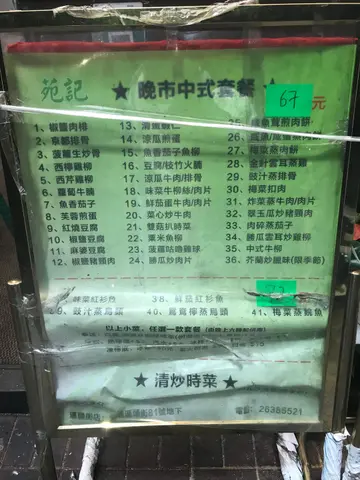 苑記 ★ 晚市中式套餐 ★ 67元
1、椒鹽肉排
2、京都排骨
3、菠蘿生炒骨
4、西檸雞柳
5、西芹雞柳
6、蘿蔔牛腩
7、魚香茄子
8、芙蓉煎蛋
9、紅燒豆腐
10、椒鹽豆腐
11、麻婆豆腐
12、椒鹽豬頸肉
13、滑蛋蝦仁
14、涼瓜煎蛋
15、魚香茄子魚柳
16、豆腐/枝竹火腩
17、涼瓜牛肉/排骨
18、味菜牛柳絲/肉片
19、鮮茄蛋牛肉/肉片
20、菜心炒牛肉
21、雙菇扒時菜
22、粟米魚柳
23、菠蘿咕嚕雞球
24、勝瓜炒肉片
25、
26、
27、梅菜蒸肉餅
28、金針雲耳蒸雞
29、豉汁蒸排骨
30、梅菜扣肉
31、炸菜蒸牛肉/肉片
32、翠玉瓜炒豬頸肉
33、肉碎蒸茄子
34、勝瓜雲耳炒雞柳
35、中式牛柳
36、芥蘭炒臘味(限季節)
味菜紅衫魚
38、鮮茄紅衫魚
39、豉汁蒸烏頭
40、
41、梅菜蒸鯇魚
以上小菜，任選一款套餐
★ 清炒時菜 ★
電話：26385521